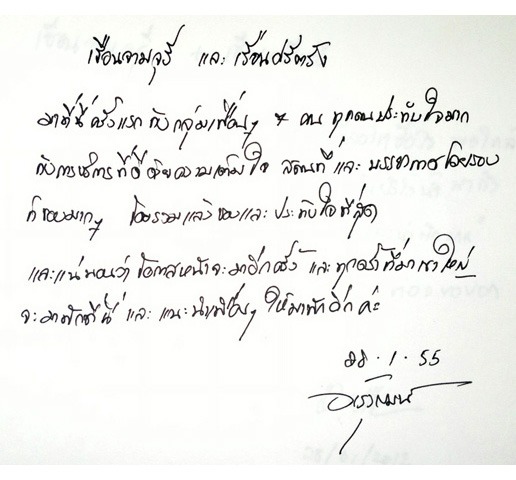 เรือนจามจุรี และ เรือนศรีตรัง
มาที่นี่ครั้งแรก กับกลุ่มเพื่อนๆ 7 คน ทุกคนประทับใจมาก
กับการบริการที่ดี ด้วยความเต็มใจ สถานที่ และ บรรยากาศโดยรอบ
ก็ชอบมากๆ โดยรวมแล้ว ชอบและ ประทับใจที่สุด
และแน่นอนว่า โอกาสหน้าจะมาอีกครั้ง และทุกครั้งที่มาเขาใหญ่
จะมาพักที่นี่ และ แนะนำเพื่อนๆ ให้มาพักอีก ค่ะ
28 . 1 . 55